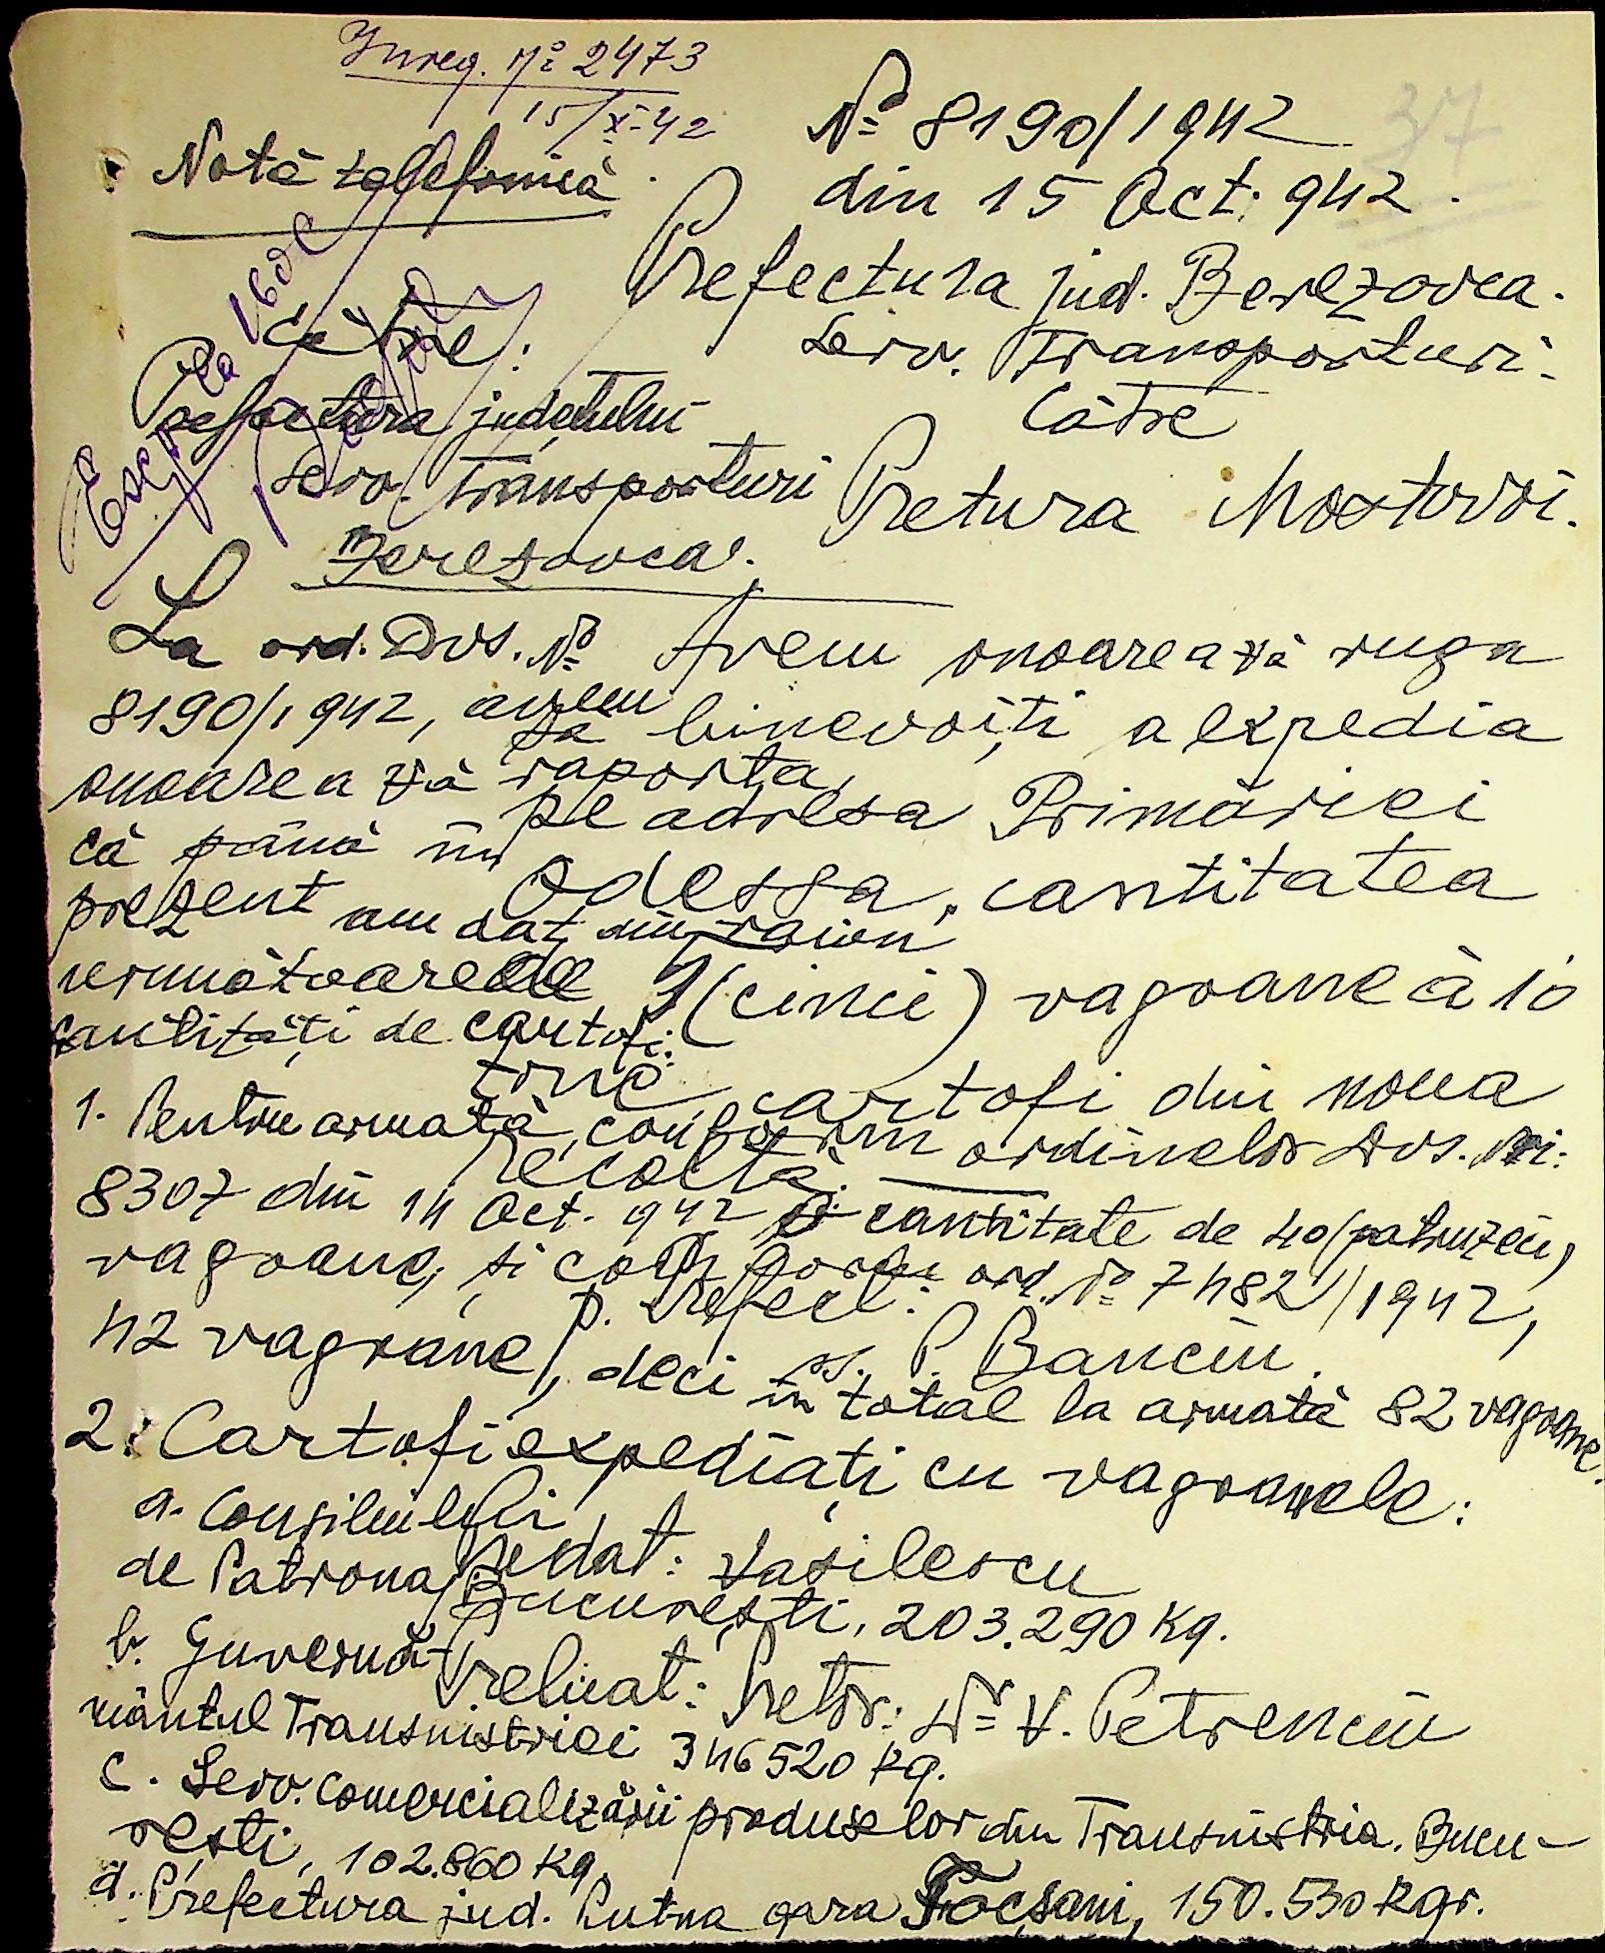 Inreg. Nº 2473
15/X-42
37
Nº 8190/1942
din 15 Oct. 942.
Prefectura jud. Berezovca.
Serv. Transporturi.
Către
Pretura Mostovoi.
Avem onoarea vă ruga
să binevoiți a expedia
pe adresa Primăriei
Odessa, cantitatea
5 (cinci) vagoane à 10
tone cartofi din noua
recoltă.
p. Prefect:
ss. P. Banciu.
Predat: Vasilescu
Preluat: Pretor: Dr V. Petrenciu
Notă telefonică
Către:
Prefectura județului
Serv. Transporturi
Berezovca.
La ord. Dvs. Nº
8190/1942, avem
onoarea vă raporta,
că până în
prezent am dat din raion
următoarele
cantități de cartofi:
1. Pentru armată, conform ordinelor Dvs. Nr:
8307 din 14 Oct. 942 o cantitate de 40 (patruzeci)
vagoane, și conform ord. Nº 7482/1942,
42 vagoane, deci în total la armată 82 vagoane.
2. Cartofi expediați cu vagoanele:
a. Consiliului
de Patronaj București, 203.290 Kg.
b. Guvernă-
mântul Transnistriei 346520 Kg.
c. Serv. Comercializării produselor din Transnistria. Bucu-
rești, 102.860 Kg.
d. Prefectura jud. Putna gara Focșani, 150.530 Kgr.